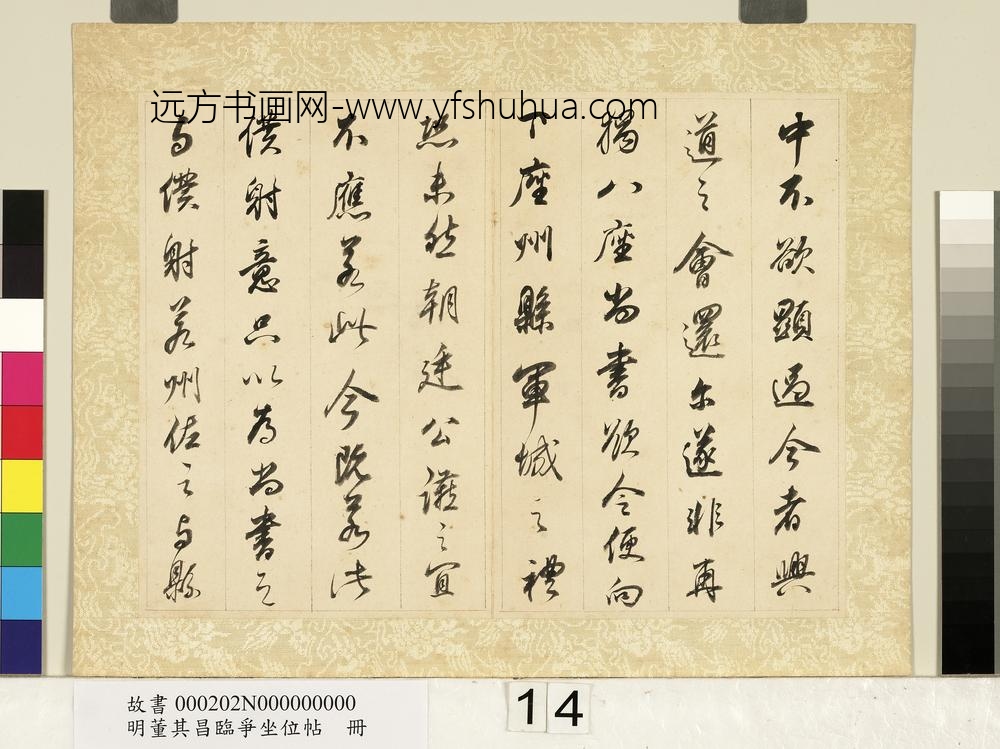 远方书画网-www.yfshuhua.com
中不欲顯過今者興
道之會還尔遂非再
揖八座尚書欲令便向
下座州縣軍城之禮
恐未然朝廷公讌之宜
不應若此今既若此
僕射意只以為尚書之
与僕射若州佐之与縣
故書 000202N000000000
明董其昌臨爭坐位帖 冊
14